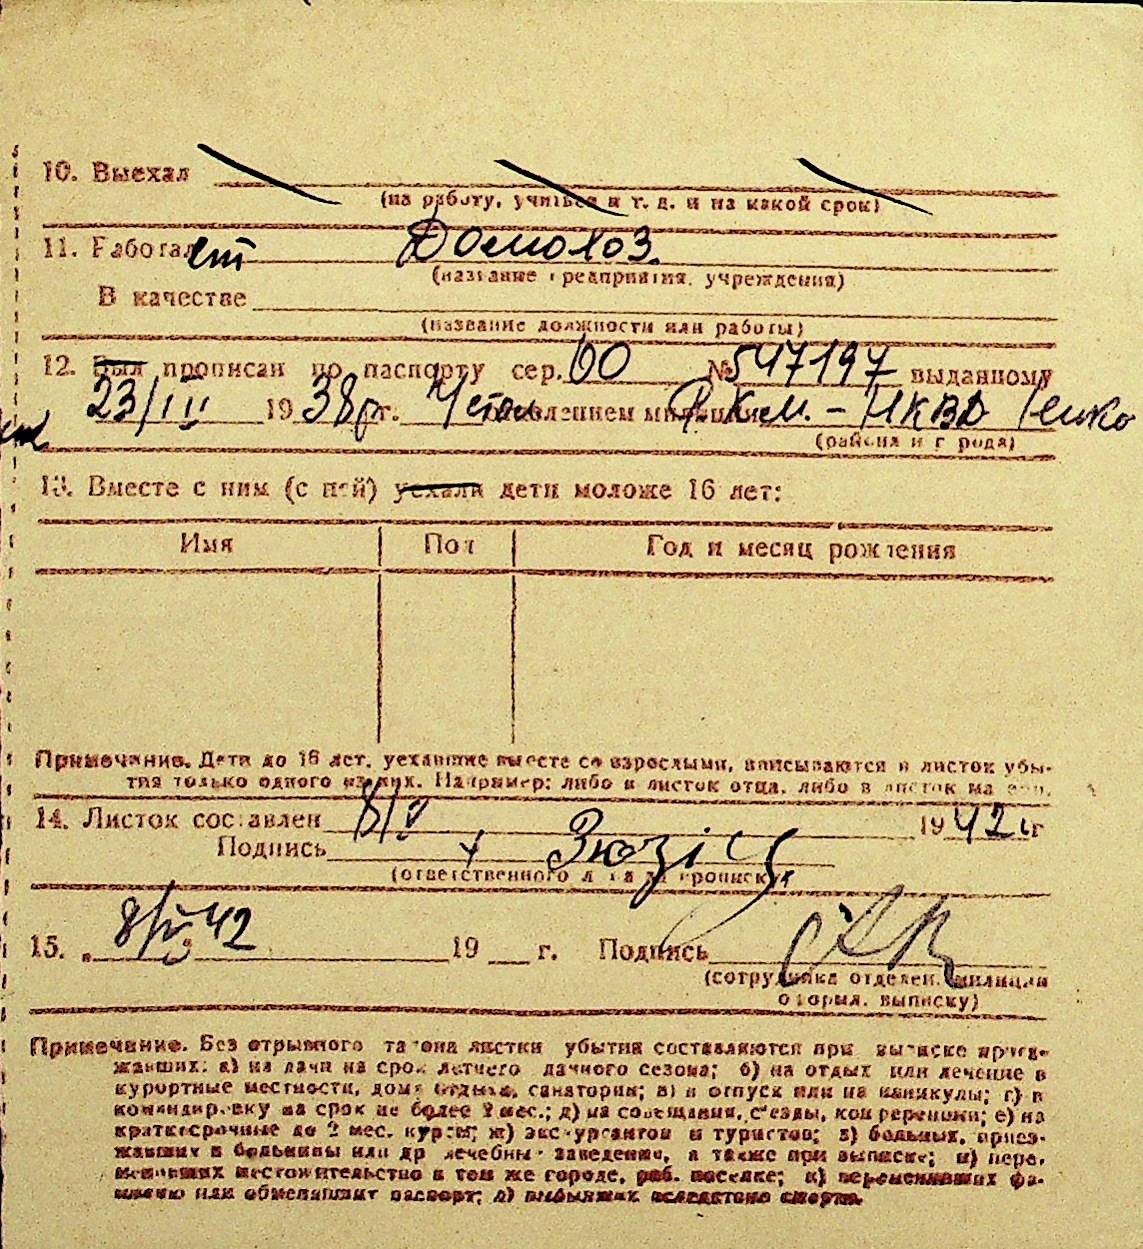 10. Выехал
(на работу, учиться и т. д. и на какой срок)
11. Работает Домохоз.
(название предприятия, учреждения)
В качестве
(название должности или работы)
12. Был прописан по паспорту сер. № 547197 выданному
23/III 1938 г. отделением милиции Р.К.М. - НКВД
(района и города)
13. Вместе с ним (с ней) уехали дети моложе 16 лет:
Имя Пол Год и месяц рождения
Примечание. Дети до 16 лет, уехавшие вместе со взрослыми, вписываются в листок убы-
тия только одного из них. Например: либо в листок отца, либо в листок ма
14. Листок составлен 8/V 1942 г
Подпись
(ответственного за прописку)
15. 8/V 42 19 г. Подпись
(сотрудника отделен. милиции
оформл. выписку)
Примечание. Без отрывного талона листки убытия составляются при выписке приез-
жавших: а) на дачи на срок летнего дачного сезона; б) на отдых или лечение в
курортные местности, дома отдыха, санатории; в) в отпуск или на каникулы; г) в
командировку на срок не более 2 мес.; д) на совещания, съезды, конференции; е) на
краткосрочные до 2 мес. курсы; ж) экскурсантов и туристов; з) больных, приез-
жавших в больницы или др лечебн. заведения, а также при выписке; и) пере-
менивших местожительство в том же городе, раб. поселке; к) переменивших фа-
милию или обменявших паспорт; л) выбывших вследствие смерти.